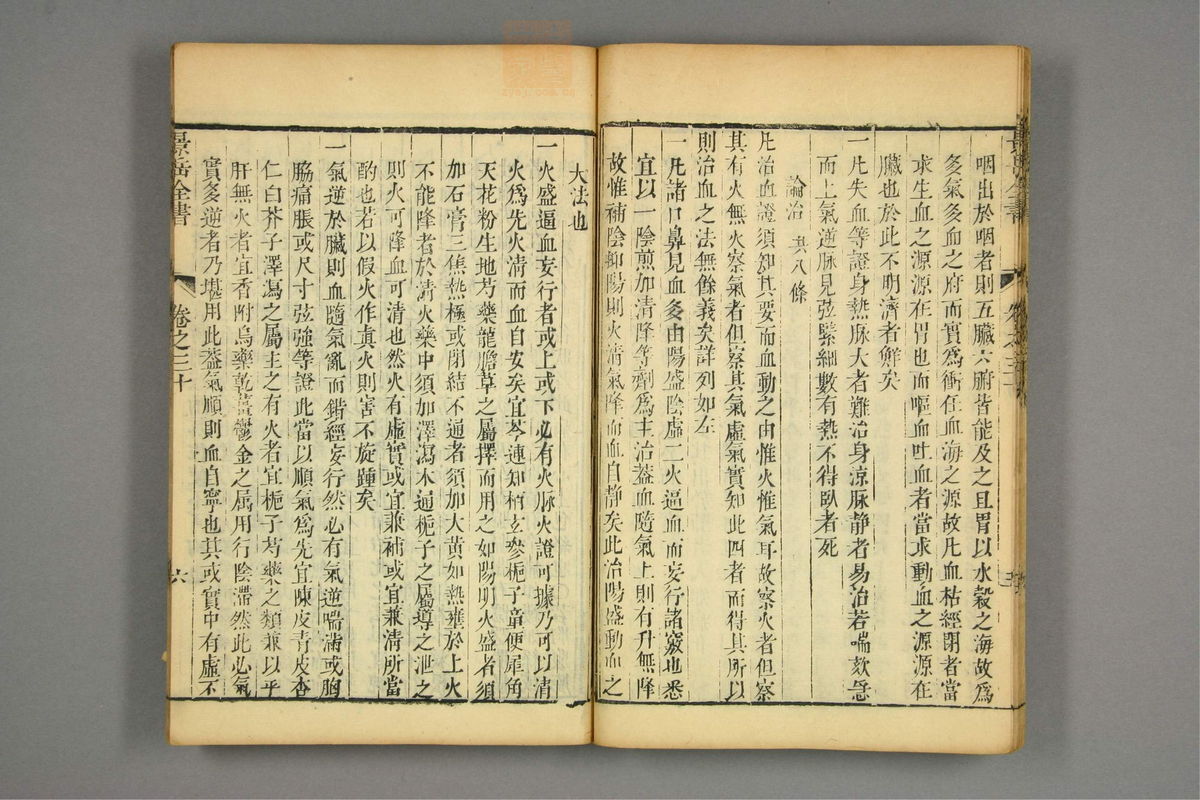 咽出於咽者則五臟六腑皆能及之且胃以水穀之海故爲
多氣多血之府而實爲衝任血海之源故凡血枯經閉者當
求生血之源源在胃也而嘔血吐血者當求動血之源源在
臟也於此不明濟者鮮矣
一凡失血等證身熱脉大者難治身涼脉静者易治若喘欬急
而上氣逆脉見弦緊細數有熱不得臥者死
論治 共八條
凡治血證須知其要而血動之由惟火惟氣耳故察火者但察
其有火無火察氣者但察其氣虛氣實知此四者而得其所以
則治血之法無餘義矣詳列如左
一凡諸口鼻見血多由陽盛陰虛二火逼血而妄行諸竅也悉
宜以一陰煎加清降等劑爲主治葢血隨氣上則有升無降
故惟補陰抑陽則火清氣降而血自静矣此治陽盛動血之
大法也
一火盛逼血妄行者或上或下必有火脉火證可據乃可以清
火爲先火清而血自安矣宜芩連知栢玄參梔子童便犀角
天花粉生地芍藥龍膽草之屬擇而用之如陽明火盛者須
加石膏三焦熱極或閉結不通者須加大黄如熱壅於上火
不能降者於清火藥中須加澤瀉木通梔子之屬導之泄之
則火可降血可清也然火有虛實或宜兼補或宜兼清所當
酌也若以假火作真火則害不旋踵矣
一氣逆於臟則血隨氣亂而錯經妄行然必有氣逆喘滿或胸
脇痛脹或尺寸弦強等證此當以順氣爲先宜陳皮青皮杏
仁白芥子澤瀉之屬主之有火者宜梔子芍藥之類兼以平
肝無火者宜香附烏藥乾薑鬱金之属用行陰滯然此必氣
實多逆者乃堪用此葢氣順則血自寧也其或實中有虛不
景岳全書
卷之三十
六